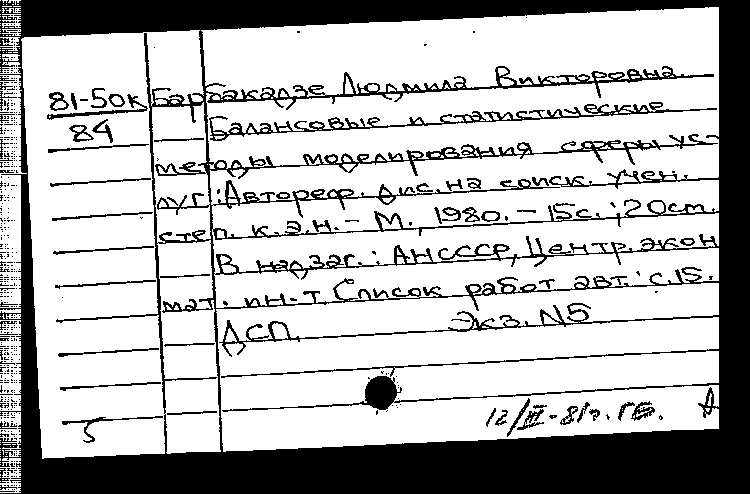 81-50к Барбакадзе, Людмила Викторовна.
84 Балансовые и статистические
методы моделирования сферы ус-
луг: Автореф. дис. на соиск. учен.
степ. к.э.н. - М., 1980. - 15с.; 20см.
В надзаг.: АНСССР, Центр. экон
мат. ин-т. Список работ авт.: с.15.
ДСП. Экз. N5
5 12/III-81г. ГБ.